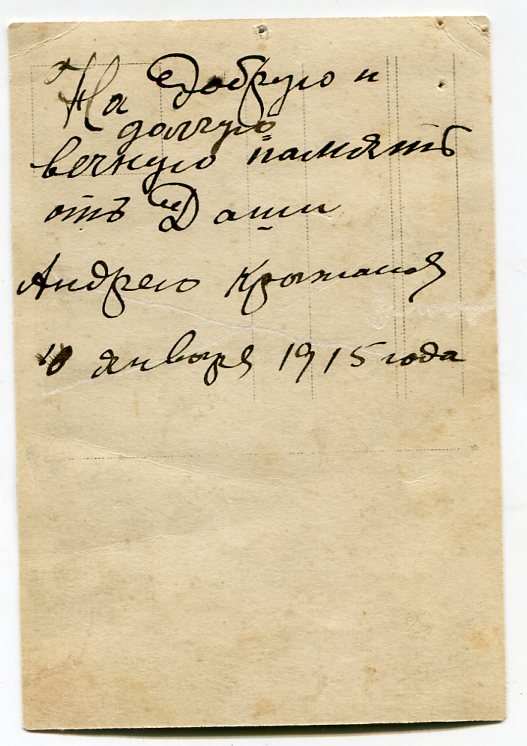 На Добрую и
долгую
вечную память
отъ Даши
Андрею
10 января 1915 года